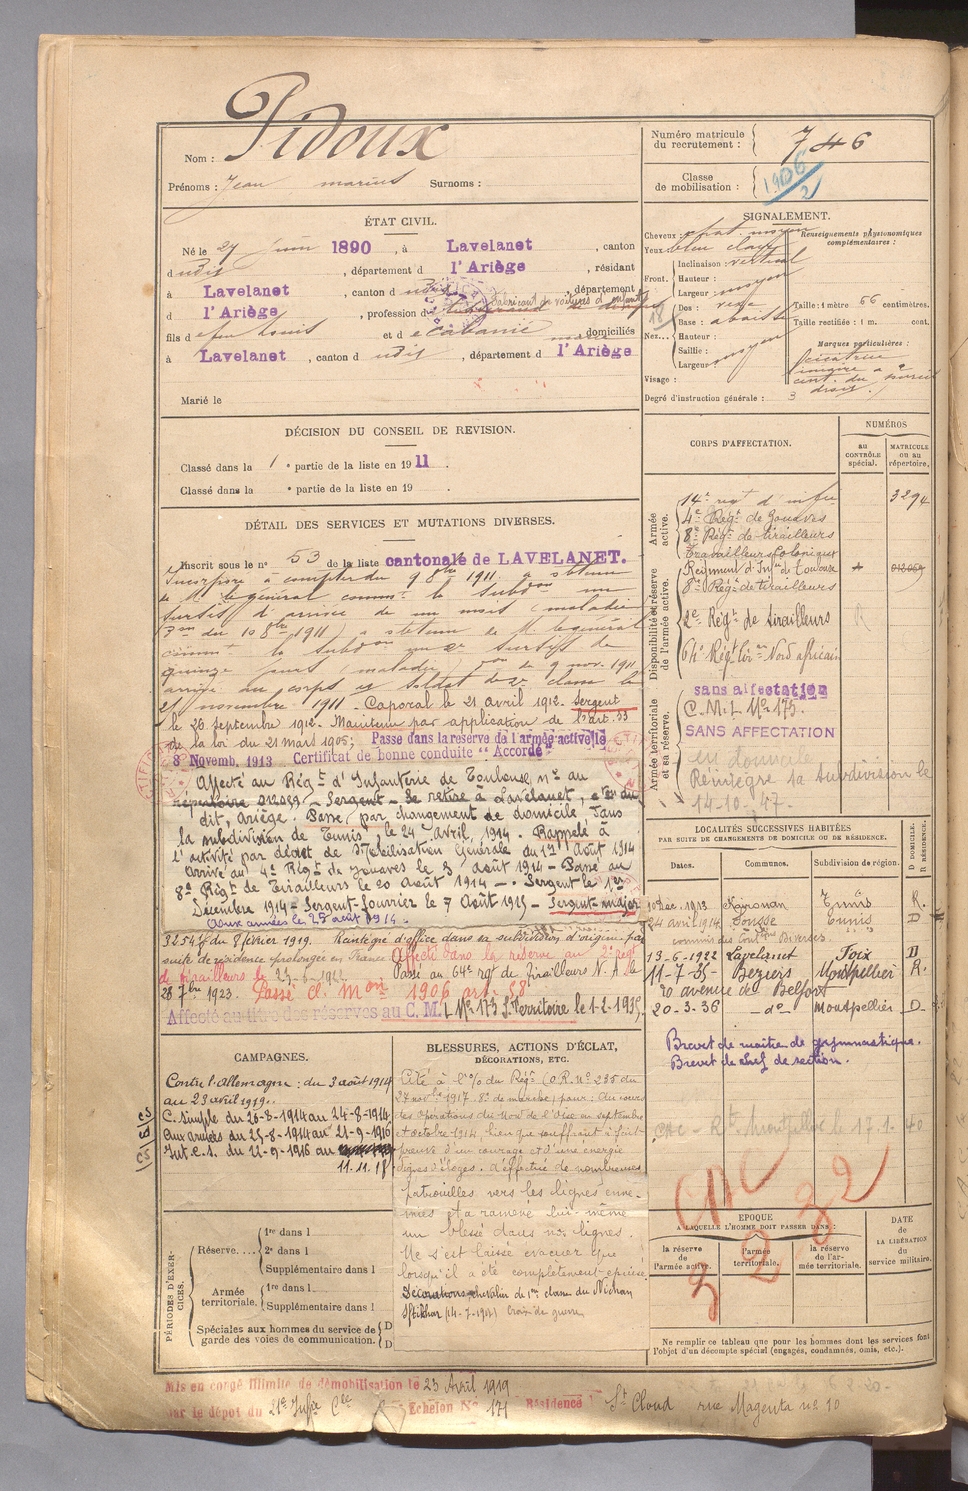 Pidoux
Nom :
Prénoms : Jean Marius Surnoms :
Numéro matricule
du recrutement : 746
Classe
de mobilisation : 1906/2
ÉTAT CIVIL.
Né le 27 juin 1890, à Lavelanet, canton
d udit, département d l'Ariège, résidant
à Lavelanet, canton d udit, département
d l'Ariège, profession d fabricant de voitures d'enfants
fils d feu Louis et d e Cabanié, domiciliés
à Lavelanet, canton d udit, département d l'Ariège
Marié le
SIGNALEMENT.
Cheveux : chat. moyen
Yeux bleu clair
Front. Inclinaison : vertical
Hauteur :
Largeur : moyen
Nez... Dos :
Base : abaissé
Hauteur :
Saillie :
Largeur : moyen
Visage :
Degré d'instruction générale : 3
Renseignements physionomiques
complémentaires :
Taille : 1 mètre 66 centimètres.
Taille rectifiée : 1 m. cent.
Marques particulières :
cicatrice
droit.
DÉCISION DU CONSEIL DE REVISION.
Classé dans la 1e partie de la liste en 1911.
Classé dans la e partie de la liste en 19
DÉTAIL DES SERVICES ET MUTATIONS DIVERSES.
Inscrit sous le no 53 de la liste cantonale de LAVELANET.
Incorporé à compter du 9 8bre 1911. a obtenu
de M. le général commt la Subdon un
sursis d'arrivée de un mois (maladie)
Don du 10 8bre 1911) a obtenu de M. le général
commt la Subdon un 2e sursis de
quinze jours (maladie) Don de 9 nov. 1911
arrivé au corps et soldat de 2e classe le
21 novembre 1911. Caporal le 21 avril 1912. Sergent
le 26 septembre 1912. Maintenu par application de l'art. 33
de la loi du 21 mars 1905; Passé dans la réserve de l'armée active le
8 Novemb. 1913 Certificat de bonne conduite "Accordé"
Affecté au Régt d'Infanterie de Toulouse, no au
répertoire 012059 - Sergent - Se retire à Lavelanet, cton du
dit, Ariège. Passé, par changement de domicile, dans
la subdivision de Tunis, le 24 avril 1914. Rappelé à
l'activité par décret de Mobilisation Générale du 1er Août 1914
Arrivé au 4e Régt de Zouaves le 3 août 1914 - Passé au
8e Régt de Tirailleurs le 20 Août 1914 -. Sergent le 1er
Décembre 1914 - Sergent-fourrier le 7 Août 1915 - Sergent-major
Aux armées le 29 août 1914.
du 8 février 1919. Réintégré d'office dans sa subdivision d'origine par
suite de résidence prolongée en France. Affecté dans la réserve au 2e régt
de tirailleurs le 23-6-1922. Passé au 64e rgt de Tirailleurs N. A. le
28 7bre 1923. Passé cl. Mon 1906 art. 58
Affecté au titre des réserves au C. M. L No 173 S. Territoire le 1-2-1935
CORPS D'AFFECTATION.
NUMÉROS
au
CONTRÔLE
spécial.
MATRICULE
ou au
répertoire.
Armée
active.
14e regt d'infie 3294
4e Régt de Zouaves
8e Régt de tirailleurs
Travailleurs Coloniaux
Disponibilité et réserve
de l'armée active.
Régiment d'Inf. de Toulouse 012059
8e Régt de tirailleurs
2e Régt de tirailleurs R
64e Régt tir. Nord africain
Armée territoriale
et sa réserve.
sans affectation
C. M. L No 175.
SANS AFFECTATION
en domicile
Réintègre sa subdivision le
14-10-47.
LOCALITÉS SUCCESSIVES HABITÉES
PAR SUITE DE CHANGEMENTS DE DOMICILE OU DE RÉSIDENCE.
Dates. Communes. Subdivision de région. D DOMICILE. R RÉSIDENCE.
10 Dec. 1913 Kairouan Tunis R.
24 avril 1914 Sousse Tunis D
13-6-1922 Lavelanet Foix D
11-7-35- Béziers Montpellier R.
20 avenue de Belfort
20-3-36 - do - Montpellier D
Brevet de maître de gymnastique.
Brevet de chef de section.
Montpellier le 17.1.40
CAMPAGNES.
Contre l'Allemagne : du 3 août 1914
au 23 avril 1919.
C. Simple du 20-8-1914 au 24-8-1914
Aux armées du 25-8-1914 au 21-9-1916
Int. C. S. du 22-9-1916 au
11.11.18
BLESSURES, ACTIONS D'ÉCLAT,
DÉCORATIONS, ETC.
Cité à l'o/ du Régt (O.R. No 235 du
27 novbre 1917. 8e de marche) pour : Au cours
des opérations du Nord de l'Oise en septembre
et octobre 1914, bien que souffrant a fait
preuve d'un courage et d'une énergie
dignes d'éloges. A effectué de nombreuses
patrouilles vers les lignes enne-
mies et a ramené lui-même
un blessé dans nos lignes.
Ne s'est laissé évacuer que
lorsqu'il a été complètement épuisé.
Décorations Chevalier de 1ère classe du Nichan
Iftikhar (14-7-1917) Croix de guerre
PÉRIODES D'EXER-
CICES.
Réserve.... 1re dans l
2e dans l
Supplémentaire dans l
Armée
territoriale. 1re dans l
Supplémentaire dans l
Spéciales aux hommes du service de
garde des voies de communication. D
D
CAC 2 2
3 2
EPOQUE
A LAQUELLE L'HOMME DOIT PASSER DANS :
la réserve
de
l'armée active.
l'armée
territoriale.
la réserve
de l'ar-
mée territoriale.
DATE
de
LA LIBÉRATION
du
service militaire.
Ne remplir ce tableau que pour les hommes dont les services font
l'objet d'un décompte spécial (engagés, condamnés, omis, etc.).
Mis en congé illimité de démobilisation le 23 Avril 1919
par le dépôt du 21e Infie Cie Echelon No 171 Résidence St Cloud rue Magenta no 10